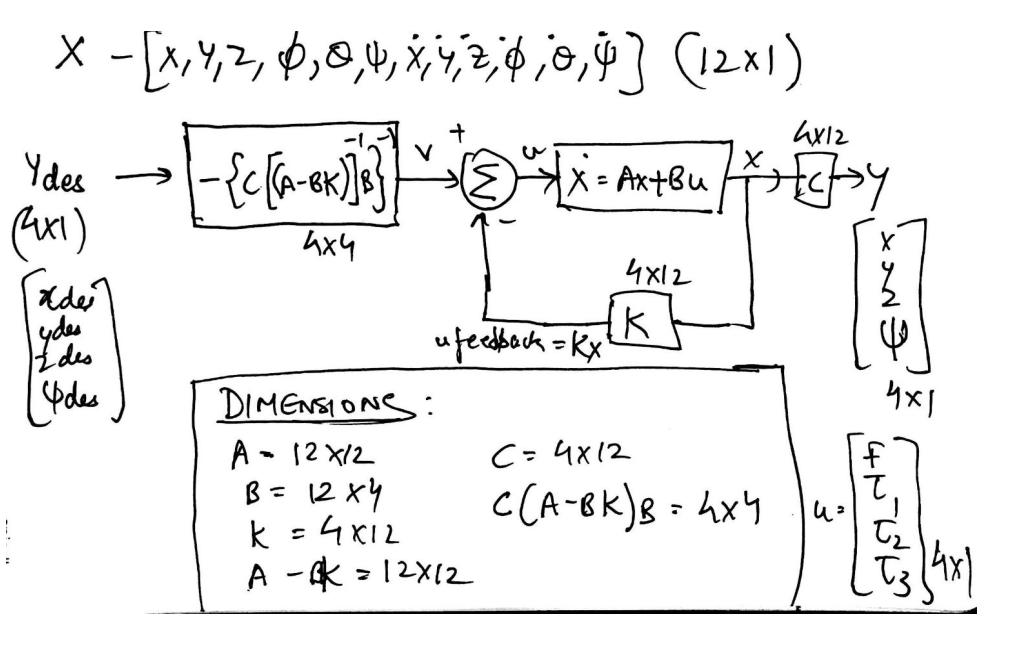 X - [x, y, z, ϕ, θ, ψ, ẋ, ẏ, ż, ϕ̇, θ̇, ψ̇] (12x1)
Ydes
(4x1)
xdes
ydes
zdes
ψdes
-{C[(A-BK)]⁻¹B}⁻¹
4x4
V
+
Σ
-
u
Ẋ = Ax+Bu
X
4x12
C
y
x
y
z
ψ
4x1
4x12
K
ufeedback = Kx
DIMENSIONS :
A - 12x12
B = 12x4
K = 4x12
A - BK = 12x12
C = 4x12
C(A-BK)B = 4x4
u =
F
τ1
τ2
τ3
4x1